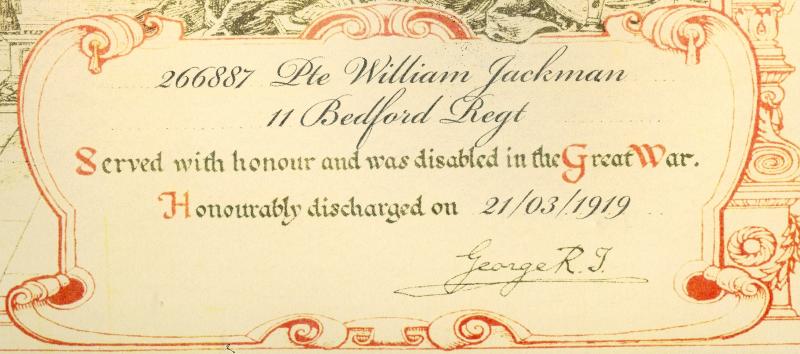 266887 Pte William Jackman
11 Bedford Regt
Served with honour and was disabled in the Great War.
Honourably discharged on 21/03/1919
George R.I.